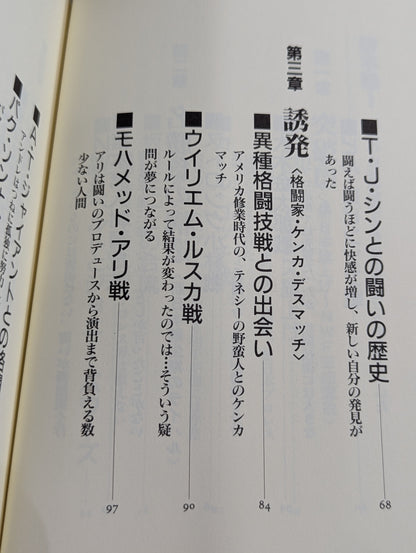 ■T・J・シンとの闘いの歴史
闘えば闘うほどに快感が増し、新しい自分の発見が
あった
68
第三章 誘発〈格闘家・ケンカ・デスマッチ〉
■異種格闘技戦との出会い
アメリカ修業時代の、テネシーの野蛮人とのケンカ
マッチ
84
■ウイリエム・ルスカ戦
ルールによって結果が変わったのでは…そういう疑
問が夢につながる
90
■モハメッド・アリ戦
アリは闘いのプロデュースから演出まで背負える数
少ない人間
97
■A・T・ジャイアントとの格闘